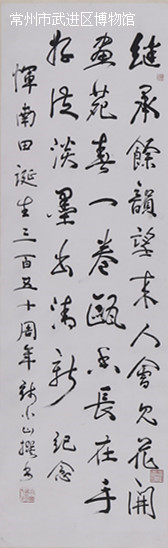 常州市武进区博物馆
继承余韵望来人会见花开
画苑春一卷瓯香长在手
好从淡墨出清新 纪念
恽南田诞生三百五十周年